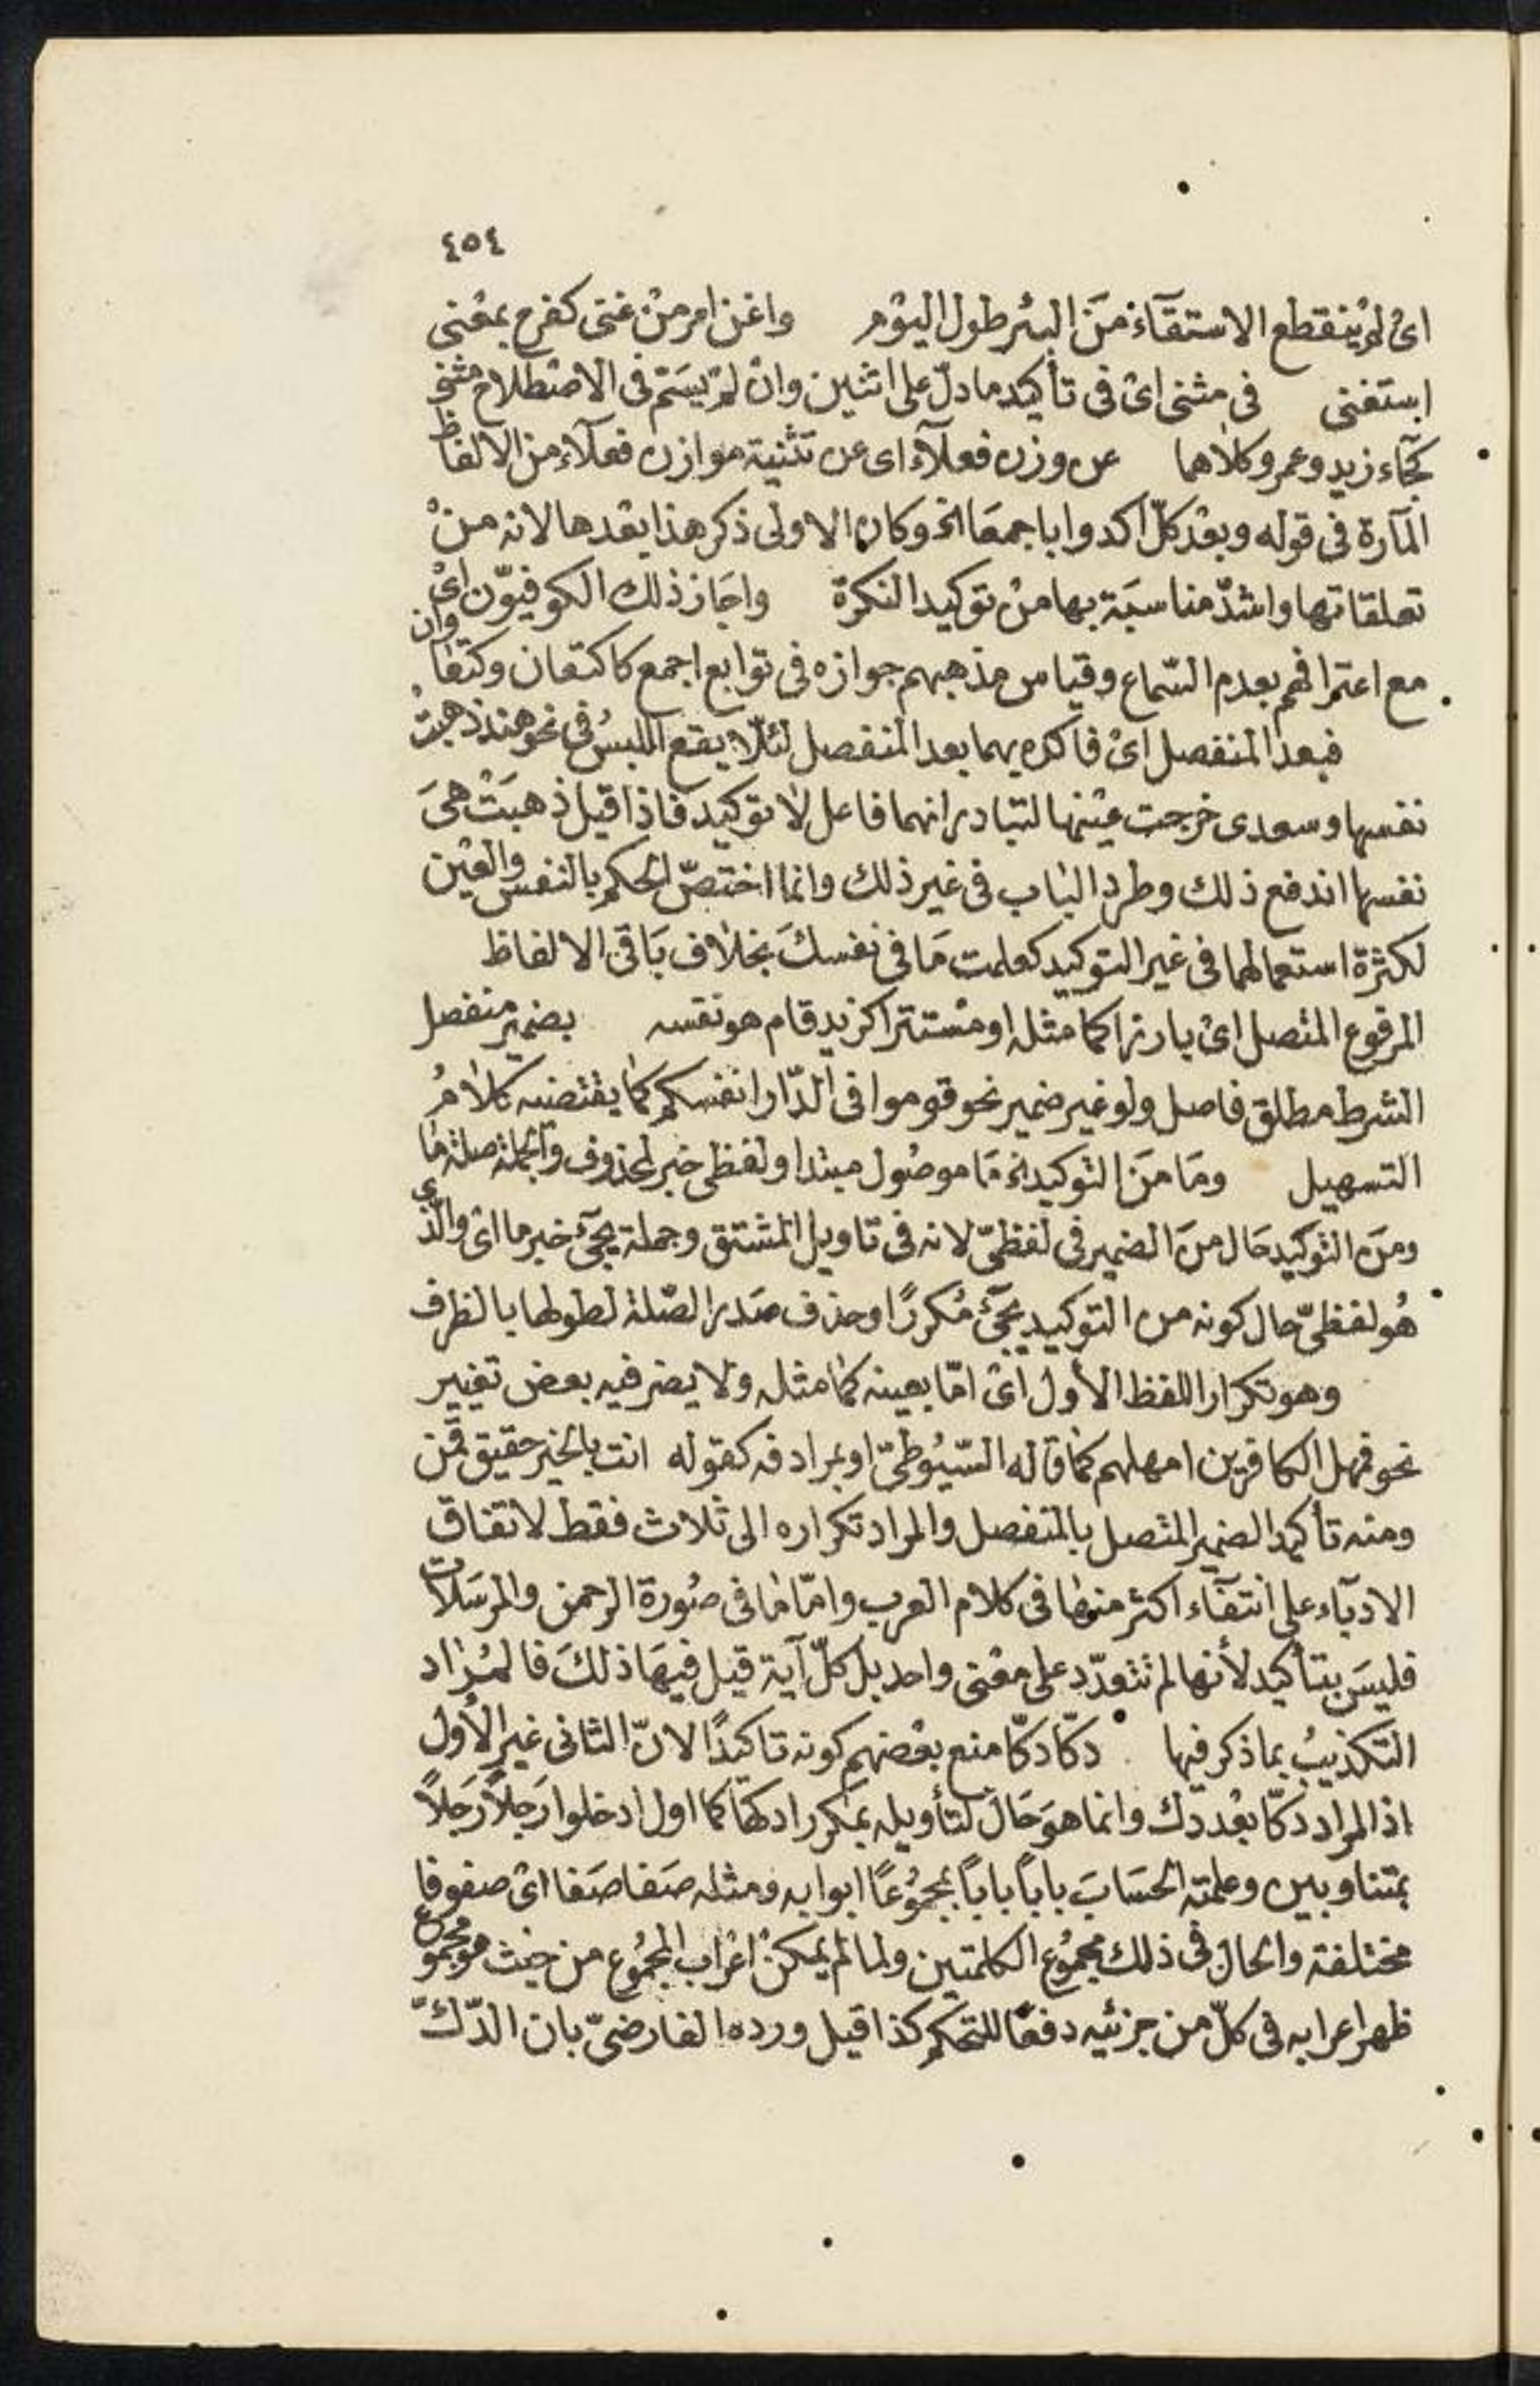 ٤٥٤
اىْ لمْ ينقطع الاستقآء منَ البئر طول اليوْم واغن امر منْ غنى كفرح بمعْنى
استغنى فى مثنى اىْ فى تأكيد ما دلّ على اثنين وانْ لمْ يسَمّ فى الاصْطلاح مثنى
كجآء زيد وعمرو كلاهما عن وزن فعلآء اى عن تثنية موازن فعلآء من الالفاظ
المآرة فى قوله وبعْد كلّ اكدوا باجمعَا الخ وكان الاولى ذكر هذا بعْدها لانه منْ
تعلقاتها واشدّ مناسبَة بها منْ توكيد النكرة واجَاز ذلك الكوفيّون اىْ
مع اعترافهم بعدم السّماع وقياس مذهبهم جوازه فى توابع اجمع كاكتعان وكتعاوان
فبعد المنفصل اىْ فاكده بهما بعد المنفصل لئلّا يقع اللبسُ فى نحو هند ذهبتْ
نفسها وسعدى خرجت عيْنها لتبادر انهما فاعل لا توكيد فاذا قيل ذهبَتْ هىَ
نفسها اندفع ذلك وطرد الباب فى غير ذلك وانما اختصّ الحكم بالنفس والعَيْن
لكثرة استعمالهما فى غير التوكيد كعلمت مَا فى نفسكَ بخلاف بَاقى الالفاظ
المرفوع المتصل اىْ بارزا كما مثله او مسْتترا كزيد قام هو نفسه بضمير منفصل
الشرط مطلق فاصل ولو غير ضمير نحو قوموا فى الدّار انفسكم كما يقتضيه كلامُ
التسهيل ومَا منَ التوكيد الخ مَا موصُول مبتدا ولفظى خبر لمحذوف والجملة صلة ما
ومن التوكيد حَال منَ الضمير فى لفظىّ لانه فى تاويل المشتق وجملة يجئ خبر ما اى والّذي
هُو لفظىّ حال كونه من التوكيد يجئ مُكررًا وحذف صَدر الصّلة لطولها بالظرف
وهو تكرار اللفظ الأول اىْ امّا بعينه كما مثله ولا يضر فيه بعض تغيير
نحو فمهل الكافرين امهلهم كما قاله السّيُوطىّ او بمرادفه كقوله انت بالخير حقيق قمن
ومنه تأكيد الضمير المتصل بالمنفصل والمراد تكراره الى ثلاث فقط لاتفاق
الادبآء على انتفآء اكثر منها فى كلام العرب وامّا ما فى صُورة الرحمن والمرسَلات
فليسَ بتأكيد لأنها لم تتعدّد على معْنى واحد بل كلّ آية قيل فيهَا ذلكَ فالمُراد
التكذيبُ بما ذكر فيها دكّا دكّا منع بعْضهم كونه تاكيدًا لانّ الثانى غير الأول
اذ المراد دكّا بعْد دّك وانما هوَ حَال لتأويله بمكرر ادكهَا كما اول ادخلوا رَجلاً رَجلاً
بمتناوبين وعلمته الحسَابَ باباً باباً بمجمُوعًا ابوابه ومثله صَفا صَفا اىْ صفوفا
مختلفة والحال فى ذلك مجمُوع الكلمتين ولما لم يمكنْ اعْراب المجمُوع من حيث هو مجموع
ظهر اعرابه فى كلّ من جزئيه دفعًا للتحكم كذا قيل ورده الفارضىّ بان الدّكّ